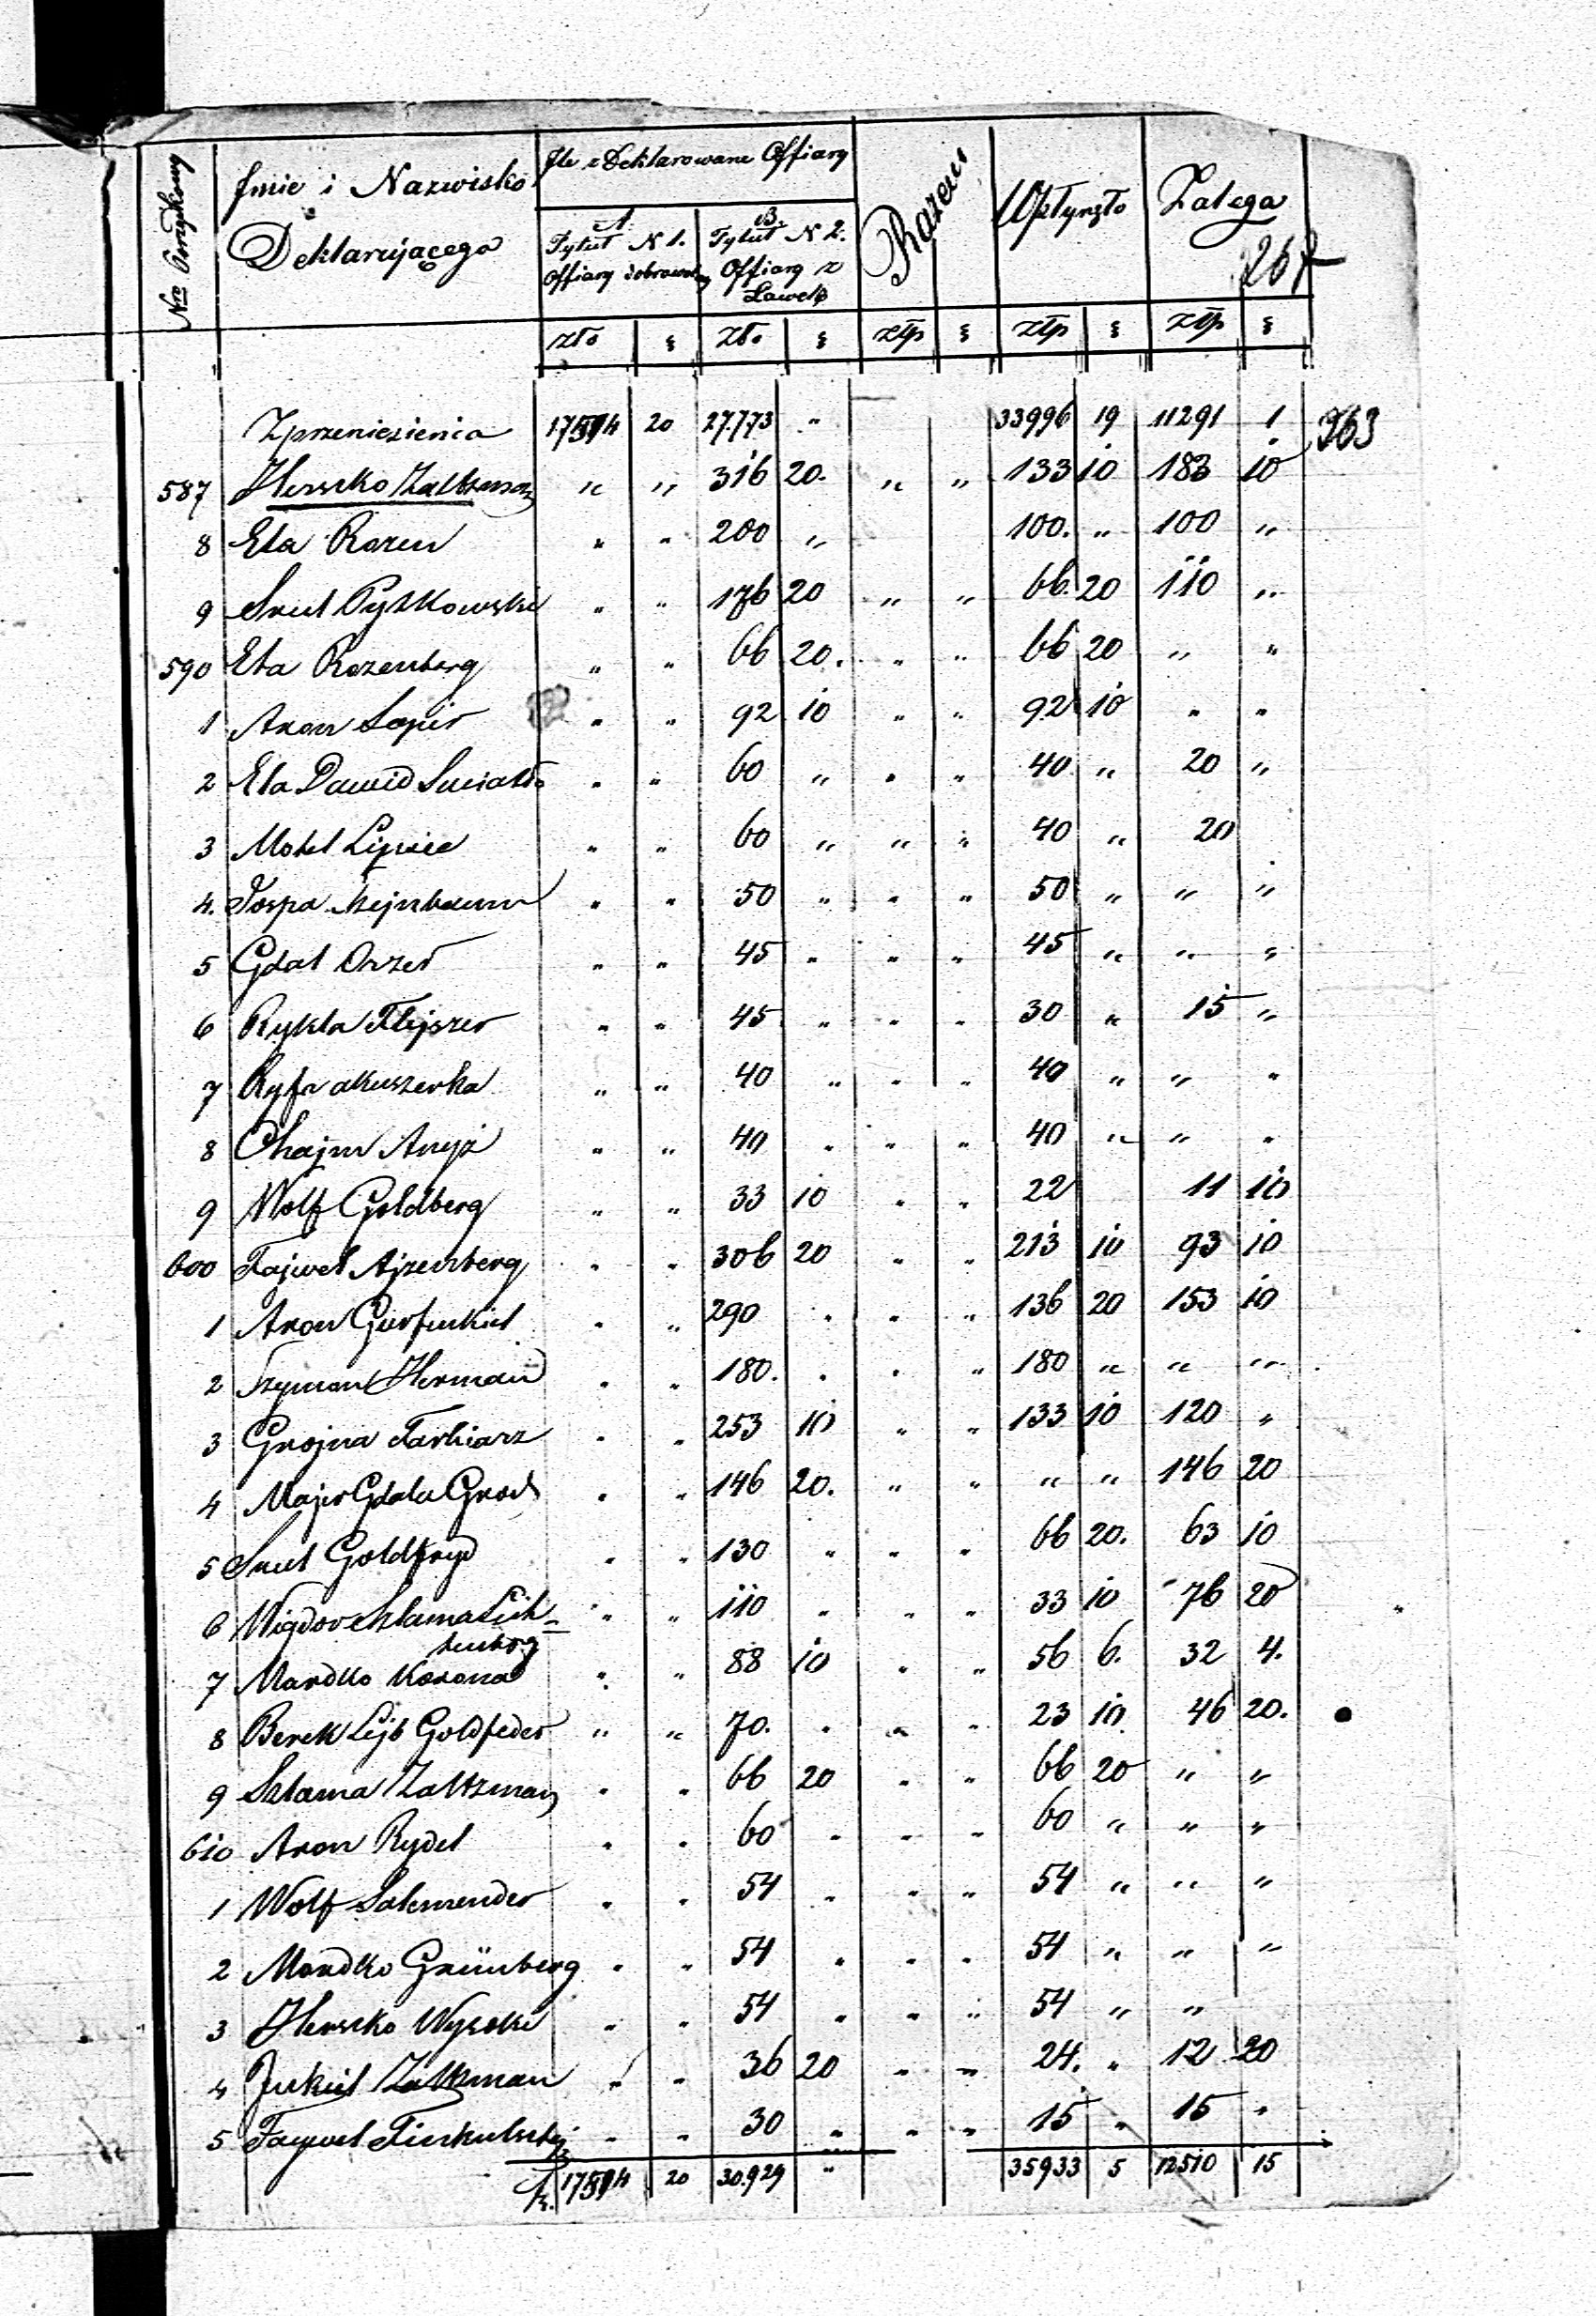 Nro Porządkowy | Imie i Nazwisko Deklarującego | Ile z Deklarowane Offiary | Razem | Wpłynęło | Zalega
A. Tytuł N 1. Offiary dobrowolny | B. Tytuł N 2. Offiary z Ławek
267
złp | g | złp | g | złp | g | złp | g | złp | g
Z przeniesienia 17514 20 27.773 " 33996 19 11291 1 363
587 Herszko Zaltzman " " 316 20. " " 133 10 183 10
8 Eta Rozen " " 200 " 100. " 100 "
9 Srul Pyzkowski " " 176 20 " " 66. 20 110 "
590 Eta Rozenberg " " 66 20. " " 66 20 " "
1 Aron Sapir " " 92 10 " " 92 10 " "
2 Ela Dawid Swiatło " " 60 " " " 40 " 20 "
3 Motel Lipiec " " 60 " " " 40 " 20
4. Tospa Szejnbaum " " 50 " " " 50 " " "
5 Gdal Orzeł " " 45 " " " 45 " " "
6 Rykla Flejszer " " 45 " " " 30 " 15 "
7 Ryfa akuszerka " " 40 " " " 40 " " "
8 Chajm Anyż " " 40 " " " 40 " " "
9 Wolf Goldberg " " 33 10 " " 22 11 10
600 Fajwel Ajzenberg " " 306 20 " " 213 10 93 10
1 Aron Gurfinkiel " " 290 " " " 136 20 153 10
2 Szymon Herman " " 180. " " " 180 " " "
3 Grojna Farbiarz " " 253 10 " " 133 10 120 "
4 Majer Gdala Grod " " 146 20. " " " " 146 20
5 Srul Goldfryd " " 130 " " " 66 20. 63 10
6 Wigdor Szlama Lich- " " 110 " " " 33 10 76 20
tenberg
7 Mardko Korona " " 88 10 " " 56 6. 32 4.
8 Berek Lejb Goldfeder " " 70. " " " 23 10. 46 20.
9 Szlama Zaltzman " " 66 20 " " 66 20 " "
610 Aron Rydel " " 60 " " " 60 " " "
1 Wolf Salemender " " 54 " " " 54 " " "
2 Mordko Grünberg " " 54 " " " 54 " " "
3 Herszko Wysoki " " 54 " " " 54 " "
4 Jukiel Zaltzman " " 36 20 " " 24. " 12 20
5 Faywel Finkielsztejn " " 30 " " " 15 " 15 "
17514 20 30.929 " 35933 5 12510 15